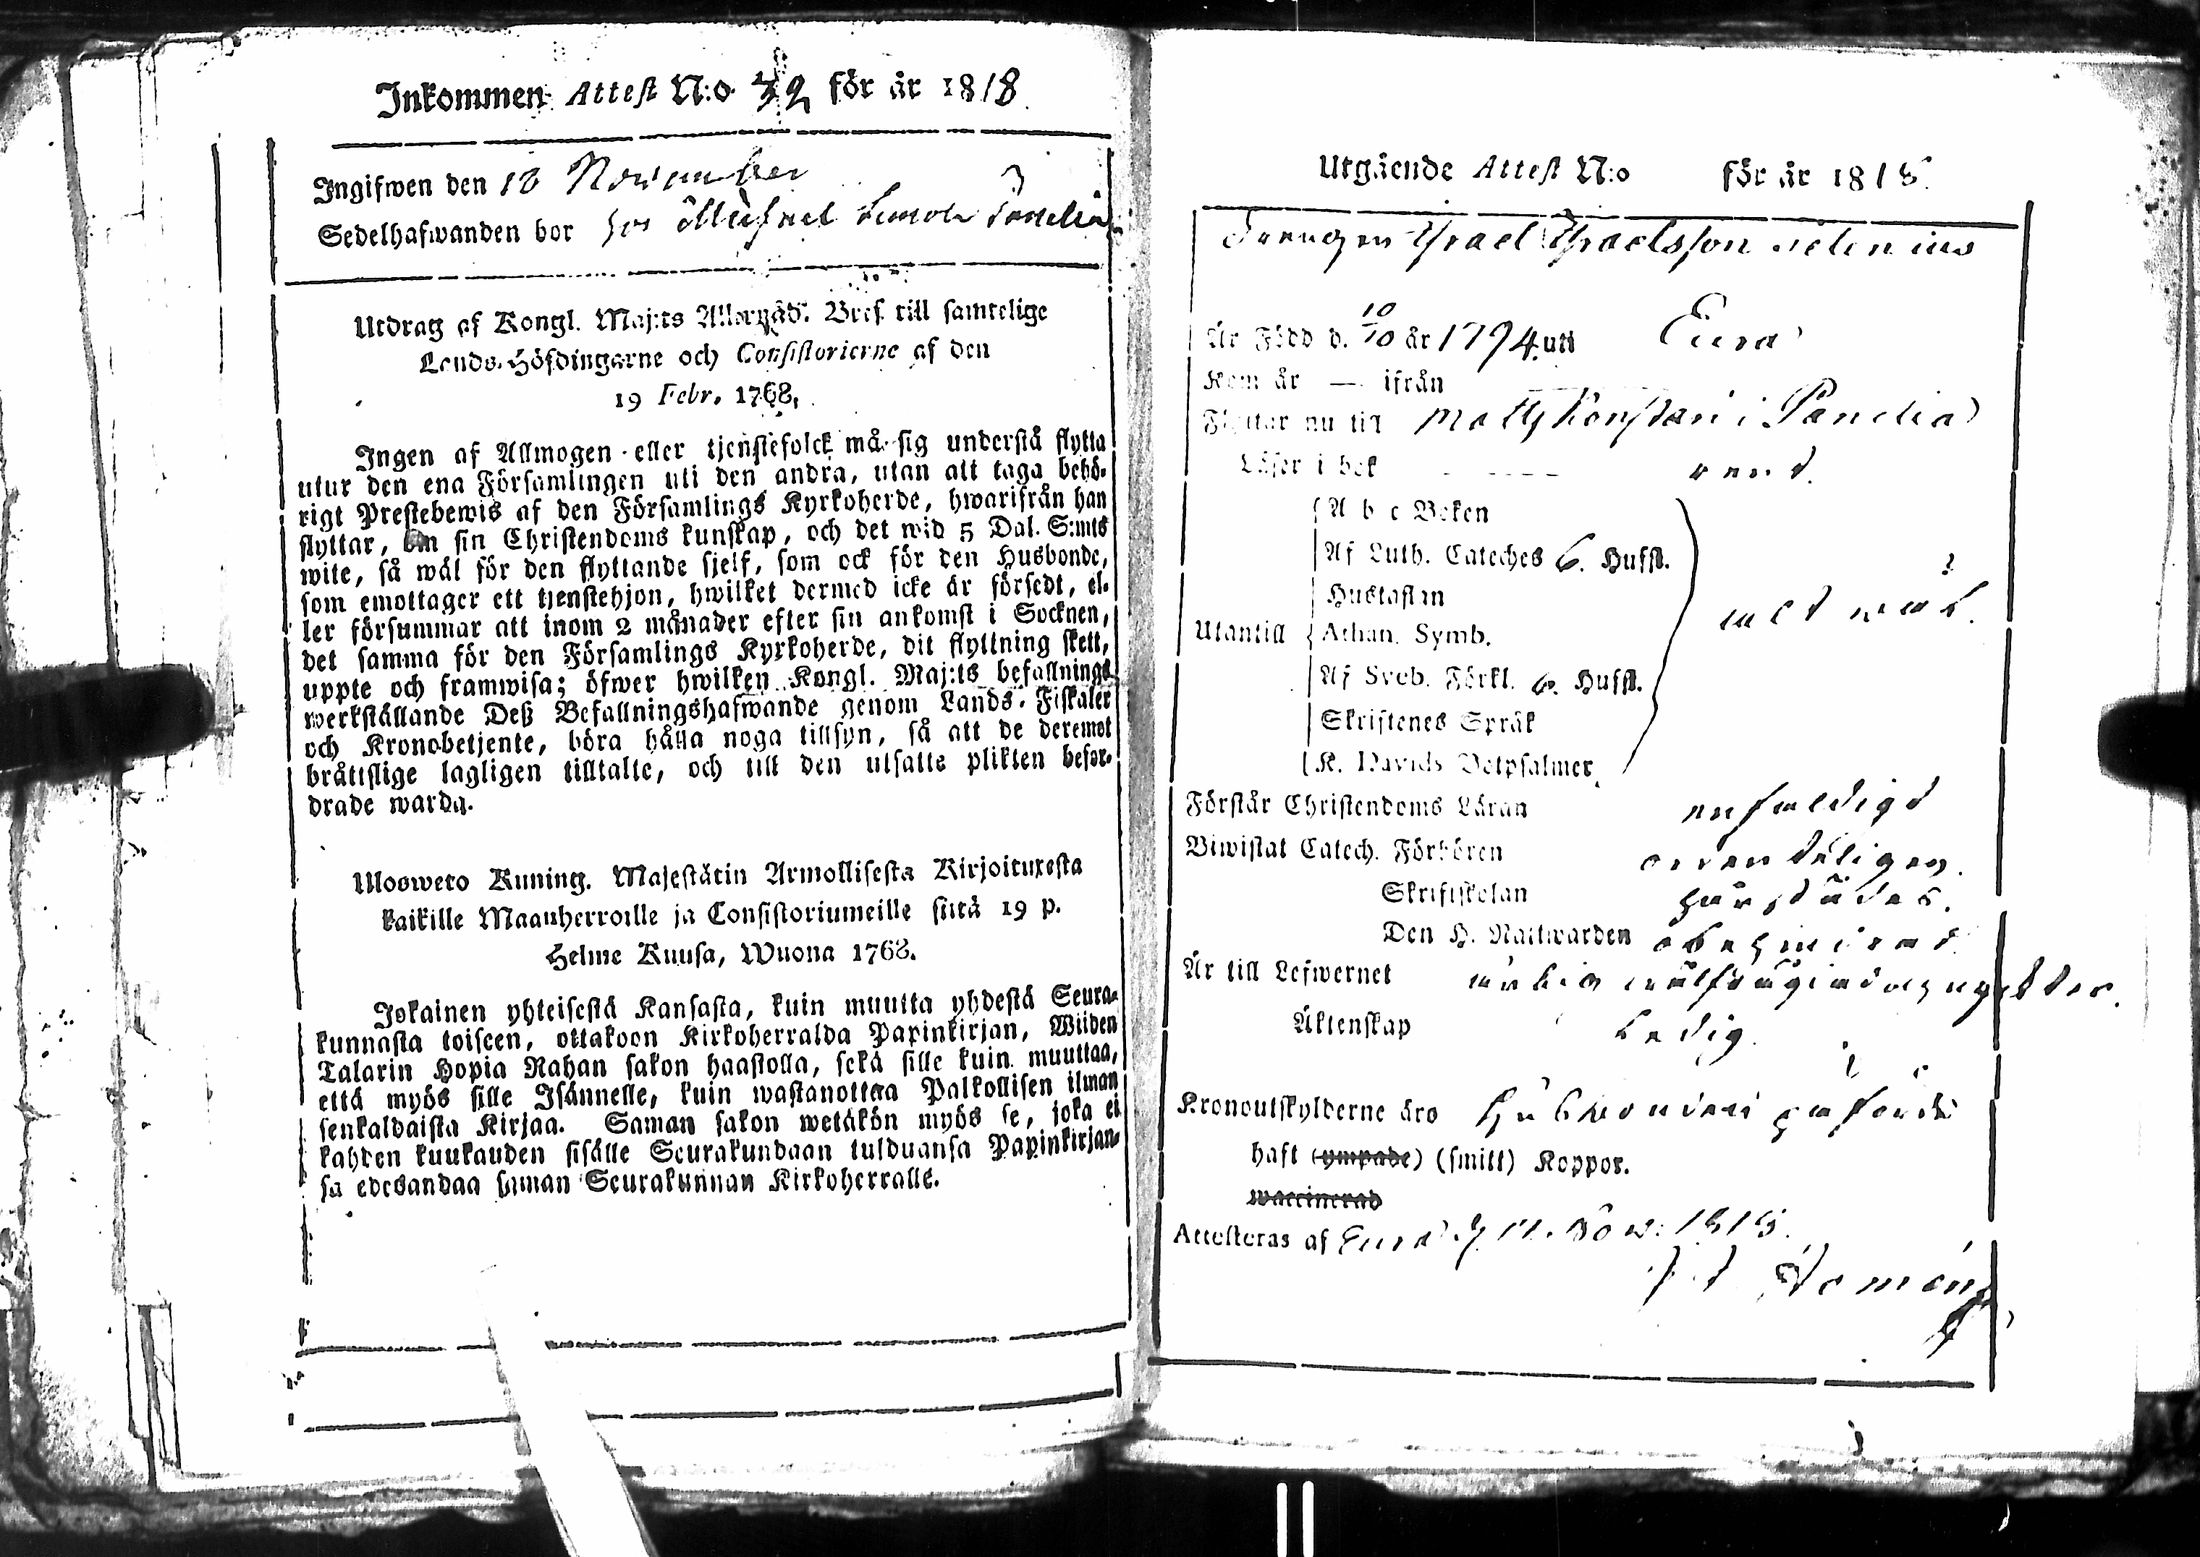 Inkommen Attest N:o 32 för år 1818
Ingifwen den 18 November
Sedelhafwanden bor hos Panelia
Utdrag af Kongl. Maj:ts Allernåd. Bref till samtelige
Lands-Höfdingarne och Consistorierne af den
19 Febr. 1768.
Ingen af Allmogen eller tjenstefolck må sig understå flytta
utur den ena Församlingen uti den andra, utan att taga behö-
rigt Prestebewis af den Församlings Kyrkoherde, hwarifrån han
flyttar, om sin Christendoms kunskap, och det wid 5 Dal. S:mts
wite, så wäl för den flyttande sjelf, som ock för den Husbonde,
som emottager ett tjenstehjon, hwilket dermed icke är försedt, el-
ler försummar att inom 2 månader efter sin ankomst i Socknen,
det samma för den Församlings Kyrkoherde, dit flyttning skett,
uppte och framwisa; öfwer hwilken Kongl. Maj:ts befallnings
werkställande Deß Befallningshafwande genom Lands-Fiskaler
och Kronobetjente, böra hålla noga tillsyn, så att de deremot
bråttslige lagligen tilltalte, och till den utsatte plikten befor-
drade warda.
Ulosweto Kuning. Majestätin Armollisesta Kirjoituxesta
kaikille Maanherroille ja Consistoriumeille siitä 19 p.
Helme Kuusa, Wuona 1768.
Jokainen yhteisestä Kansasta, kuin muutta yhdestä Seura-
kunnasta toiseen, ottakoon Kirkoherralda Papinkirjan, Wiiden
Talarin Hopia Rahan sakon haastolla, sekä sille kuin muuttaa,
että myös sille Isännelle, kuin wastanottaa Palkollisen ilman
senkaldaista Kirjaa. Saman sakon wetäkön myös se, joka ei
kahden kuukauden sisälle Seurakundaan tulduansa Papinkirjan-
sa edesandaa saman Seurakunnan Kirkoherralle.
Utgående Attest N:o för år 1818.
Drengen Israel Israelsson
Är Född d. 10/10 år 1794. uti Eura
Kom år — ifrån
Flyttar nu till Matts Konstari i Panelia
Läser i bok rent.
A b c Boken
Af Luth. Cateches 6. Hufst.
Hustaflan
Utantill Athan. Symb. med wal.
Af Sveb. Förkl. 6. Hufst.
Skriftenes Språk
K. Davids Botpsalmer
Förstår Christendoms Läran enfaldigt
Biwistat Catech. Förhören ordenteligen.
Skriftskolan härstädes.
Den H. Nattwarden obehindrad
Är till Lefwernet
Äktenskap Ledig.
Kronoutskylderne äro Husbonden påförde
haft (ympade) (smitt) Koppor.
waccinerad
Attesteras af Eura d. 11. Nov. 1818.